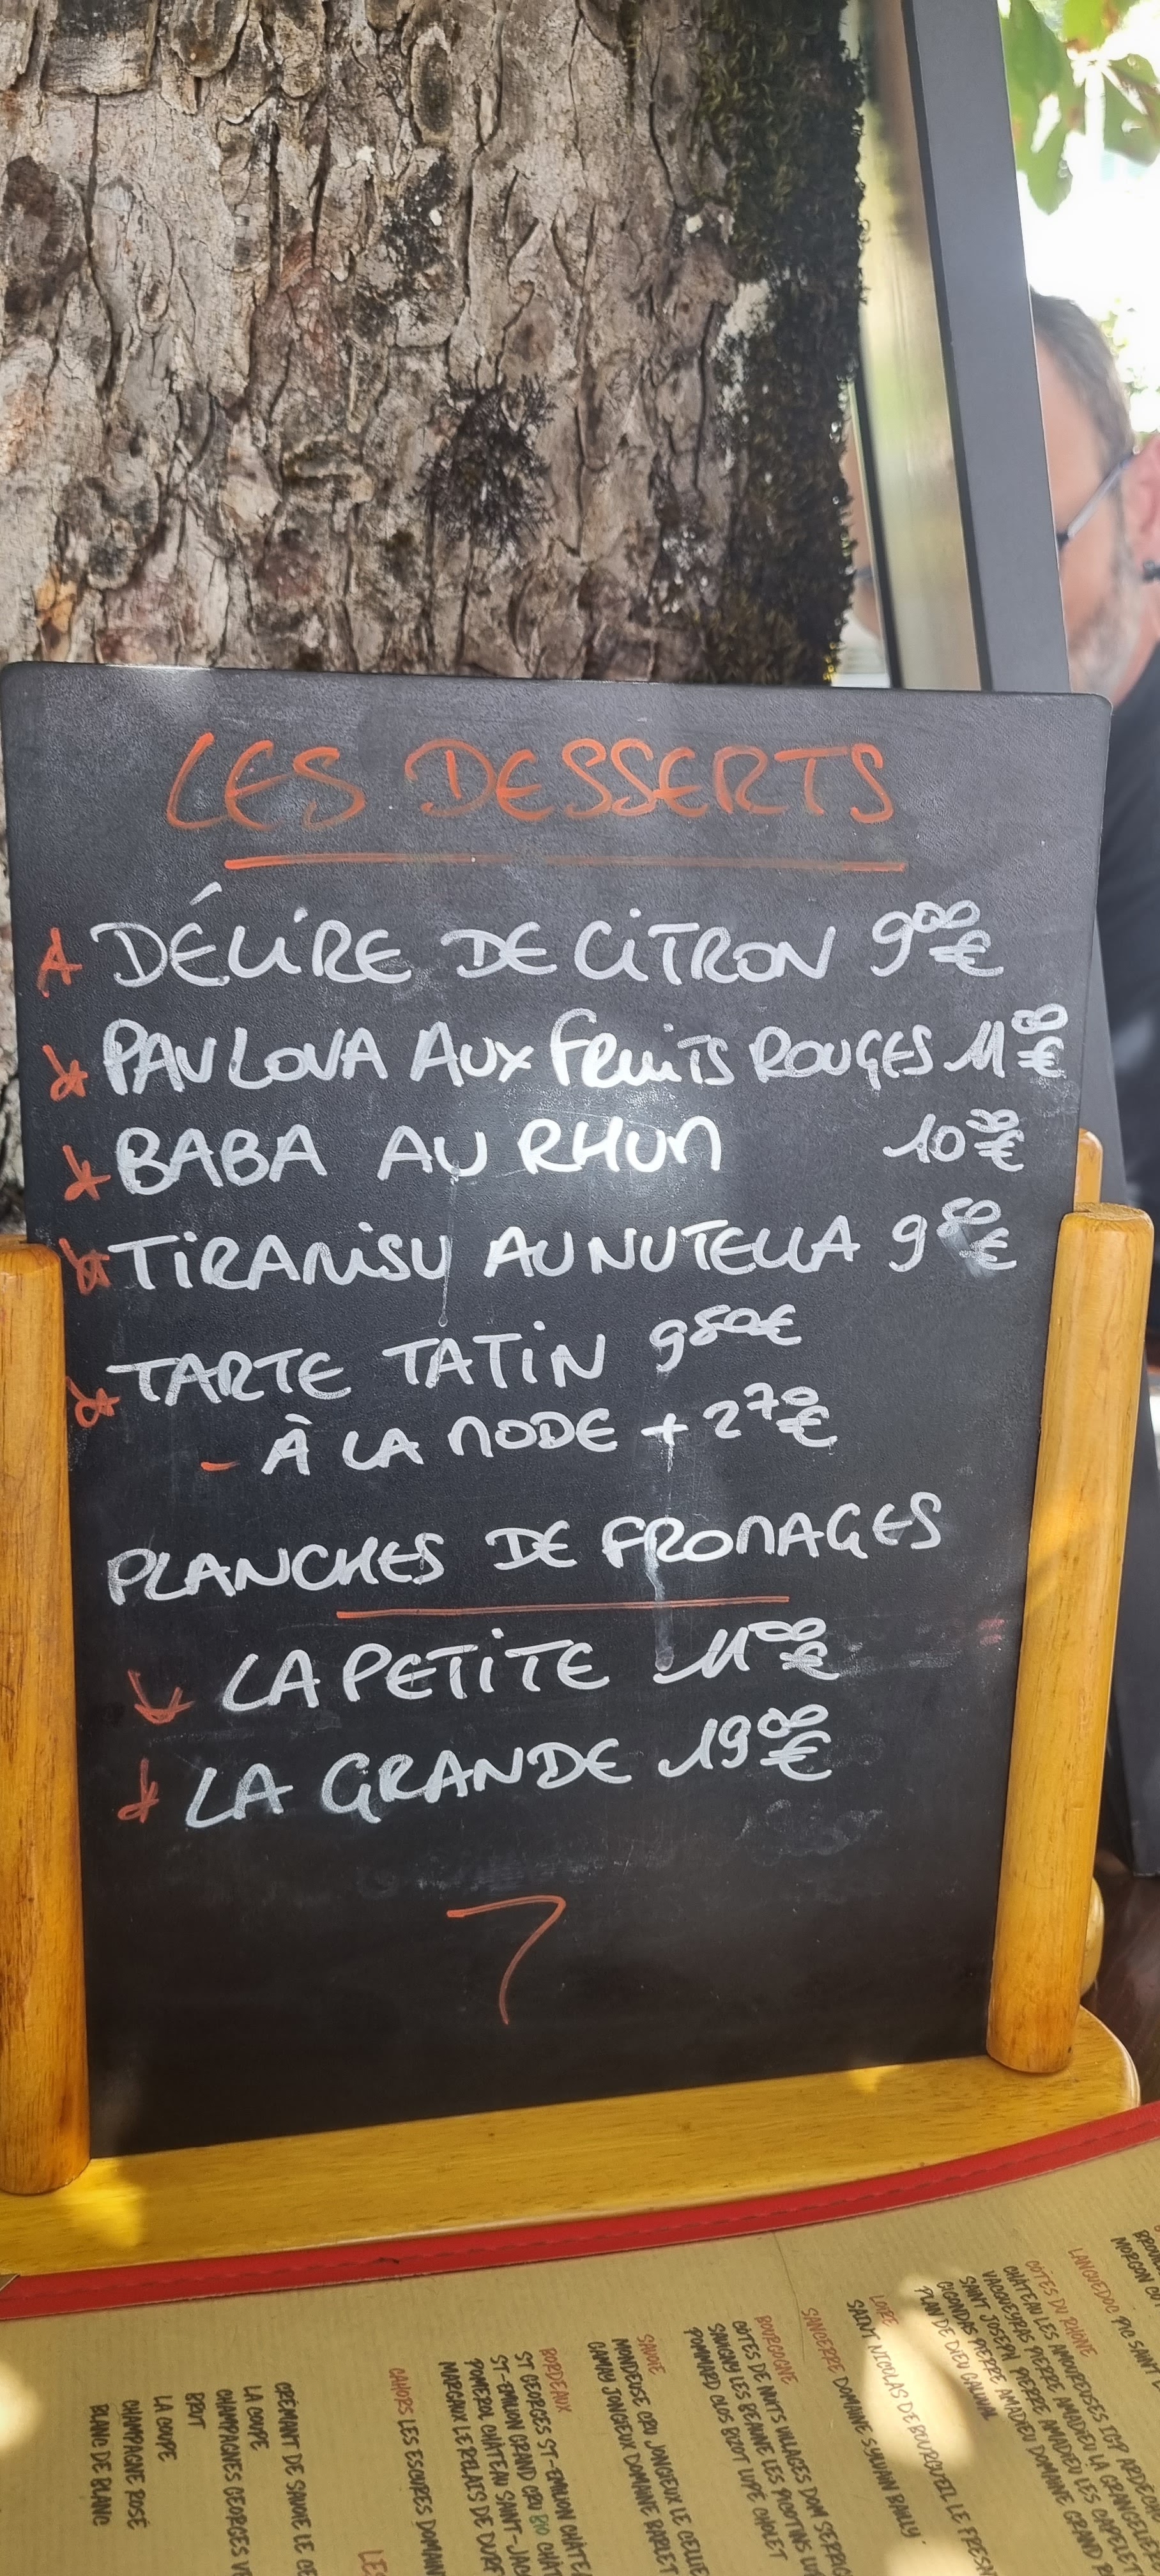 LES DESSERTS
DÉLIRE DE CITRON 9⁰⁰€
PAVLOVA AUX FRUITS ROUGES 11⁰⁰€
BABA AU RHUM 10⁰⁰€
TIRAMISU AU NUTELLA 9⁵⁰€
TARTE TATIN 9⁵⁰€
- À LA MODE + 2⁷⁰€
PLANCHES DE FROMAGES
LA PETITE 11⁰⁰€
LA GRANDE 19⁰⁰€
MORGON
LANGUEDOC PIC SAINT
CÔTES DU RHÔNE
CHÂTEAU LES AMOUREUSES IGP ARDÈCHE
VACQUEYRAS PIERRE AMADIEU LA GRANGELIÈRE
SAINT JOSEPH PIERRE AMADIEU LES CAPEL
GIGONDAS PIERRE AMADIEU DOMAINE GRAND
PLAN DE DIEU
LOIRE
SAINT NICOLAS DE BOURGUEIL LE
SANCERRE DOMAINE SYLVAIN BAILLY
BOURGOGNE
CÔTES DE NUITS VILLAGES DOM
SAVIGNY LES BEAUNE LES PICOTINS
POMMARD CLOS BIZOT LUPÉ CHOLET
SAVOIE
MONDEUSE CRU JONGIEUX LE CELLIE
GAMAY JONGIEUX DOMAINE BARLET
BORDEAUX
ST GEORGES ST-EMILION CHÂTE
ST-EMILION GRAND CRU BIO CHÂT
POMEROL CHÂTEAU SAINT-JAC
MARGAUX LE RELAIS DE DURF
CAHORS LES ESCURES DOMAIN
LES
CRÉMANT DE SAVOIE LE CE
LA COUPE
CHAMPAGNES GEORGES V
BRUT
LA COUPE
CHAMPAGNE ROSÉ
BLANC DE BLANC